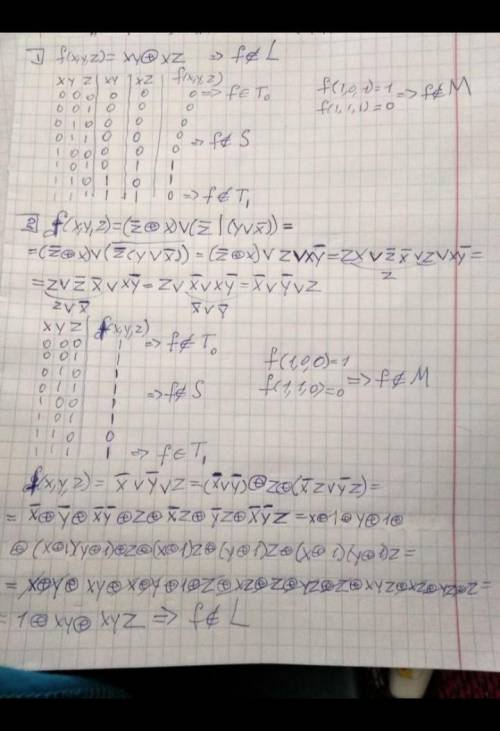 1) f(x,y,z) = xy⊕xz ⇒ f∉L
x y z | xy | xz | f(x,y,z)
0 0 0 0 0 0 ⇒ f∈T₀
0 0 1 0 0 0
0 1 0 0 0 0
0 1 1 0 0 0 ⇒ f∉S
1 0 0 0 0 0
1 0 1 0 1 1
1 1 0 1 0 1
1 1 1 1 1 0 ⇒ f∉T₁
f(1,0,1)=1
f(1,1,1)=0 ⇒ f∉M
2) f(x,y,z)=(z̅⊕x)∨(z̅ | (y∨x̅)) =
= (z̅⊕x)∨(z̅(y∨x̅)) = (z̅⊕x)∨z∨xy̅ = zx∨z̅x̅∨z∨xy̅ =
z
= z∨z̅x̅∨xy̅ = z∨x̅∨xy̅ = x̅∨y̅∨z
z∨x̅ x̅∨y̅
x y z | f(x,y,z)
0 0 0 1 ⇒ f∉T₀
0 0 1 1
0 1 0 1
0 1 1 1 ⇒ f∉S
1 0 0 1
1 0 1 1
1 1 0 0
1 1 1 1 ⇒ f∈T₁
f(1,0,0)=1
f(1,1,0)=0 ⇒ f∉M
f(x,y,z) = x̅∨y̅∨z = (x̅∨y̅)⊕z⊕(x̅z∨y̅z) =
= x̅⊕y̅⊕x̅y̅⊕z⊕x̅z⊕y̅z⊕x̅y̅z = x⊕1⊕y⊕1⊕
⊕(x⊕1)(y⊕1)⊕z⊕(x⊕1)z⊕(y⊕1)z⊕(x⊕1)(y⊕1)z =
= x⊕y⊕xy⊕x⊕y⊕1⊕z⊕xz⊕z⊕yz⊕z⊕xyz⊕xz⊕yz⊕z =
= 1⊕xy⊕xyz ⇒ f∉L